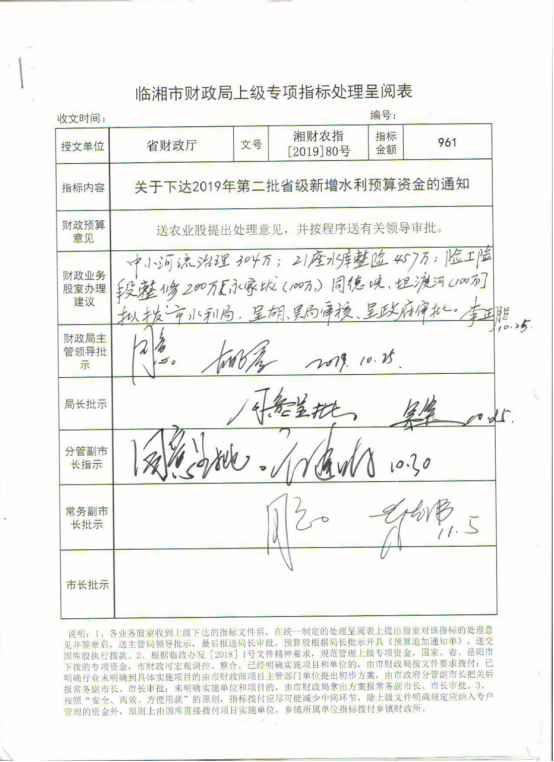 临湘市财政局上级专项指标处理呈阅表
收文时间： 编号：
授文单位 省财政厅 文号 湘财农指[2019]80号 指标金额 961
指标内容 关于下达2019年第二批省级新增水利预算资金的通知
财政预算意见 送农业股提出处理意见，并按程序送有关领导审批。
财政业务股室办理建议
中小河流治理304万；21座水库整险457万；险工险
段整修200万【永家垅（100万）同德垸、坦渡河（100万）】
拟拨市水利局，呈胡、吴局审核、呈政府审批。 10.25.
财政局主管领导批示 同意。 2019.10.25.
局长批示 同意呈批。 10.25.
分管副市长指示 同意呈批。 10.30
常务副市长批示 同意。 11.5
市长批示
说明：1、各业务股室收到上级下达的指标文件后，在统一制定的处理呈阅表上提出股室对该指标的处理意
见并签章后，送主管局领导批示，最后报送局长审批，预算股根据局长批示开具《预算追加通知单》，送交
国库股执行拨款。2、根据临政办发[2018]1号文件精神要求，规范管理上级专项资金，国家、省、岳阳市
下拨的专项资金，市财政可宏观调控、整合。已经明确实施项目和单位的，由市财政局按文件要求拨付；已
明确行业未明确到具体实施项目的由市财政商项目主管部门单位提出初步方案，由市政府分管副市长把关后
报常务副市长、市长审批；未明确实施单位和项目的，由市财政局拿出方案报常务副市长、市长审批。3、
按照“安全、高效、方便用款”的原则，指标拨付应尽可能减少中间环节，除上级文件明确规定应纳入专户
管理的资金外，原则上由国库直接拨付项目实施单位，乡镇所属单位指标拨付乡镇财政所。